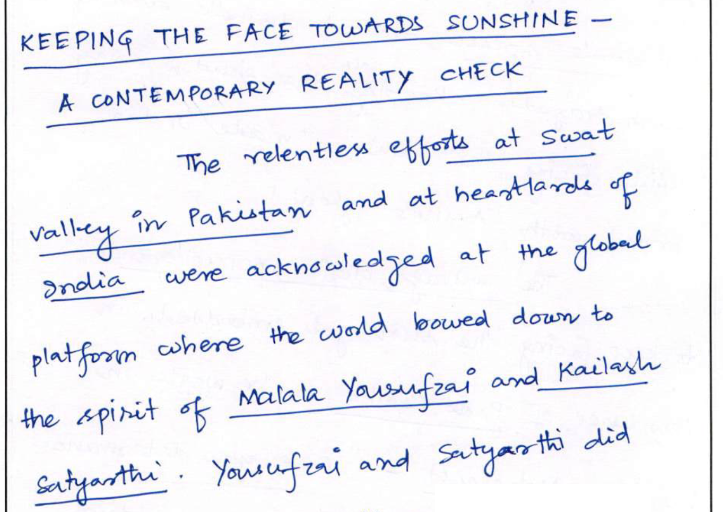 KEEPING THE FACE TOWARDS SUNSHINE –
A CONTEMPORARY REALITY CHECK
The relentless efforts at Swat
valley in Pakistan and at heartlands of
India were acknowledged at the global
platform where the world bowed down to
the spirit of Malala Yousufzai and Kailash
Satyarthi. Yousufzai and Satyarthi did